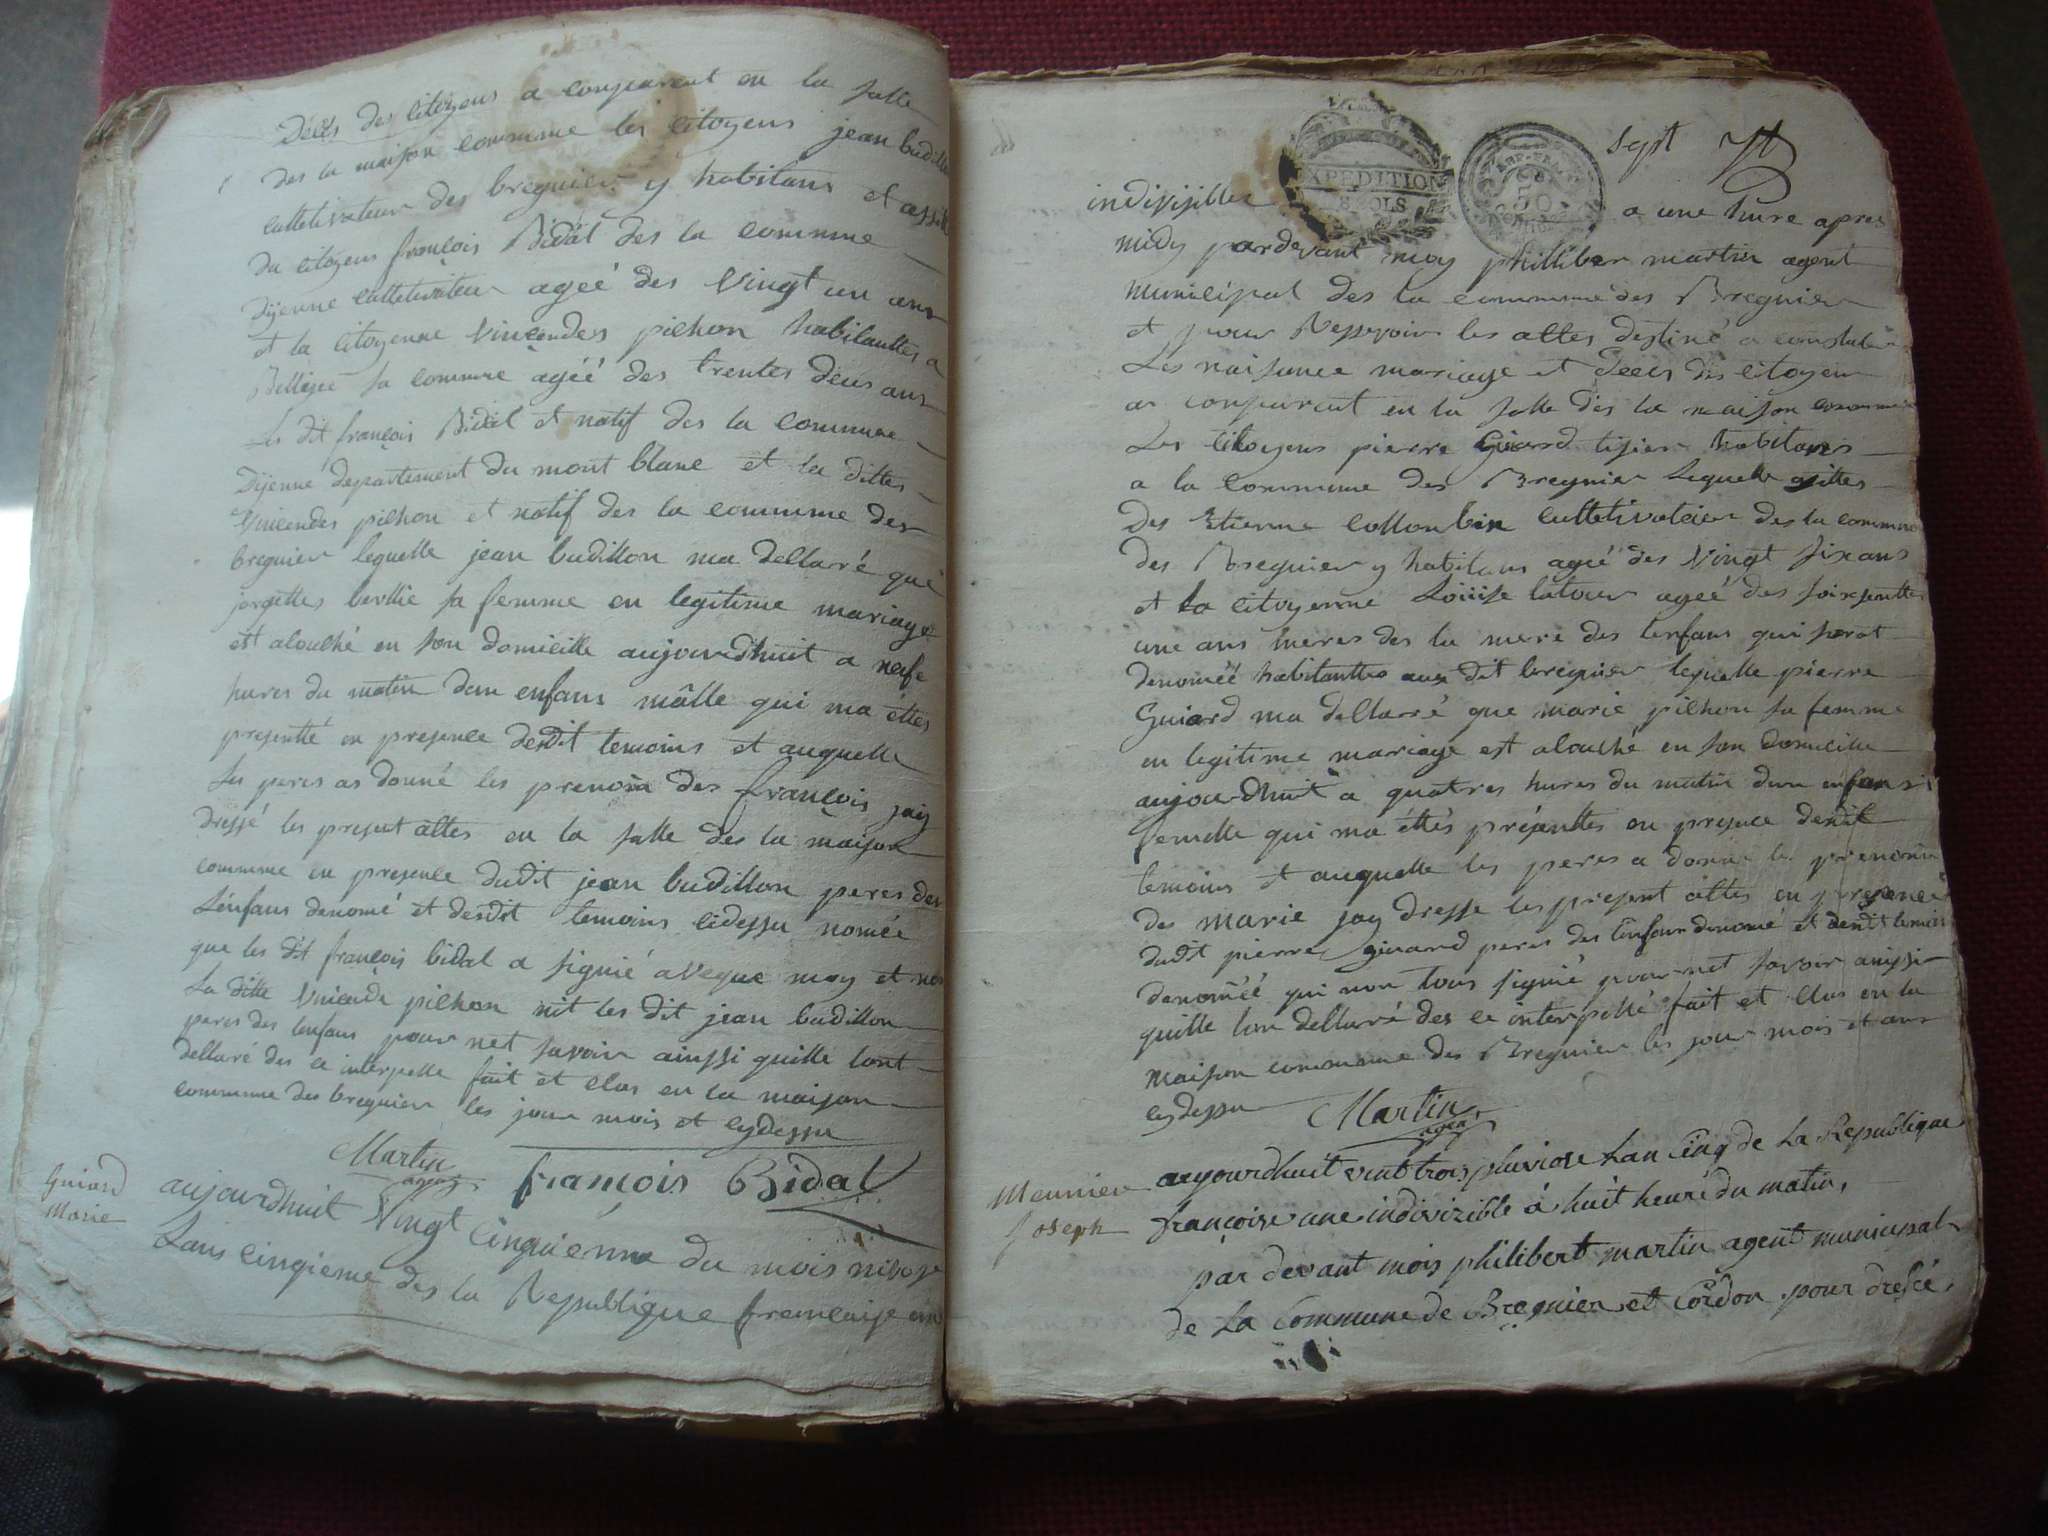 Décès des citoyens a conparent en la salle
des la maison commune les citoyens jean budillon
culltivateur des bregnier y habitans et assité
du citoyens françois Bidal des la commune
Dijenne culltivateur ageé des Vingt un ans
et la citoyenne Vincendes pilhon habitanttes a
sa commune ageé des trentes deus ans
Les dit françois Bidal et natif des la commune
Dijenne departement du mont blanc et la dittes
Vincendes pilhon et natif des la commune des
bregnier lequelle jean budillon ma dellaré que
jorgettes berllie sa femme en legitime mariage
est alouché en son domicille aujourdhuit a neufe
hures du matin dun enfans mâlle qui ma ettes
presentté en presence desdit temoins et auquelle
les peres as donné les prenom des françois jay
dressé les present altes en la salle des la maison
commune en presence dudit jean budillon peres des
Lenfans denomé et desdit temoins cidessu nomée
que les dit françois bidal a signié aveque moy et non
La ditte Vincende pilhon nit les dit jean budillon
peres des lenfans pour net savoir ainssi quille lont
dellaré des ce interpelle fait et clos en la maison
commune des bregnier les jour mois et cydessu
Martin
agent
françois Bidal
Guiard
Marie
aujourdhuit Vingt Cinquiénne du mois nivose
Lans cinqieme des la Republique francaise une
sept
indivisibles
EXPEDITION
SOLS
50
a une hure apres
midy pardevant moy philliber martin agent
municipal des la commune des Bregnier
et pour Ressevoir les altes destiné a constater
Les naisance mariage et Decis des citoyen
as conparent en la salle des la maison commune
Les citoyens pierre Guiard tisier habitans
a la commune des Bregnier Lequelle asittes
Des Etienne Collonbin culltivateur des la commune
des Bregnier y habitans ageé des Vingt six ans
et La citoyenne Louiise latour ageé des soixsentte
une ans meres des la mere des lenfans qui serat
denomeé habitanttes aux dit bregnier lequelle pierre
Guiard ma dellarré que marie pilhon sa femme
en legitime mariage est alouché en son domicille
aujourdhuit a quatres hures du matin dun enfans
femelle qui ma ettés présenttes en presence desdit
temoins et auquelle les peres a donné les prenomm
des marie jay dresse les present altes en presence
dudit pierre Guiard peres des lenfans denomé et desdit temoin
denoméé qui non tous signié pour net savoir ainssi
quille lon dellaré des ce interpellé fait et clos en la
maison commune des Bregnier les jour mois et ans
cydessu
Martin
agent
Meunier
Joseph
aujourdhuit vint trois pluviose Lan Cinq de La Republique
françoise une indivizible à huit heuré du matin,
par devant mois philibert martin agent municipal
de La Commune de Bregnier et Cordon pour dressé